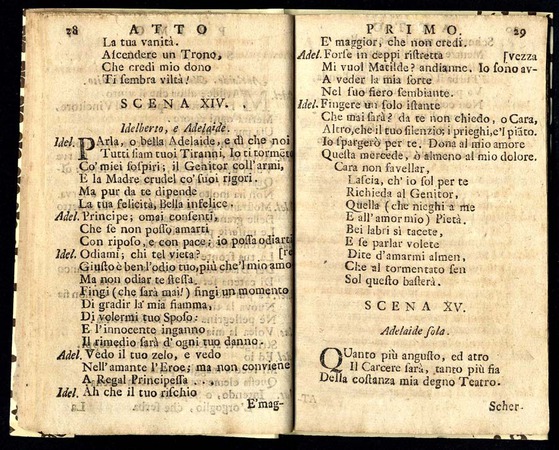 28 ATTO
La tua vanità.
Ascendere un Trono,
Che credi mio dono
Ti sembra viltà!
SCENA XIV.
Idelberto, e Adelaide.
Idel. PArla, o bella Adelaide, e dì che noi
Tutti siam tuoi Tiranni. Io ti tormẽto
Co' miei sospiri; il Genitor coll'armi,
E la Madre crudel co' suoi rigori.
Ma pur da te dipende
La tua felicità, Bella infelice.
Adel. Principe; omai consenti,
Che se non posso amarti
Con riposo, e con pace; io possa odiarti
Idel. Odiami; chi tel vieta? [re
Giusto è ben l'odio tuo, più che'l mio amo-
Ma non odiar te stessa.
Fingi (che sarà mai!) fingi un momento
Di gradir la mia fiamma,
Di volermi tuo Sposo:
E l'innocente inganno
Il rimedio sarà d'ogni tuo danno.
Adel. Vedo il tuo zelo, e vedo
Nell'amante l'Eroe; ma non conviene
A Regal Principessa ...
Idel. Ah che il tuo rischio
E'mag-
PRIMO. 29
E' maggior, che non credi.
Adel. Forse in ceppi ristretta [vezza
Mi vuol Matilde? andianne. Io sono av-
A veder la mia sorte
Nel suo fiero sembiante.
Idel. Fingere un solo istante
Che mai sarà? da te non chiedo, o Cara,
Altro, che il tuo silenzio: i prieghi, e'l piãto.
Io spargerò per te. Dona al mio amore
Questa mercede, ò almeno al mio dolore.
Cara non favellar,
Lascia, ch' io sol per te
Richieda al Genitor,
Quella (che nieghi a me
E all'amor mio) Pietà.
Bei labri si tacete,
E se parlar volete
Dite d'amarmi almen,
Che al tormentato sen
Sol questo basterà.
SCENA XV.
Adelaide sola.
QUanto più angusto, ed atro
Il Carcere sarà, tanto più fia
Della costanza mia degno Teatro.
Scher-